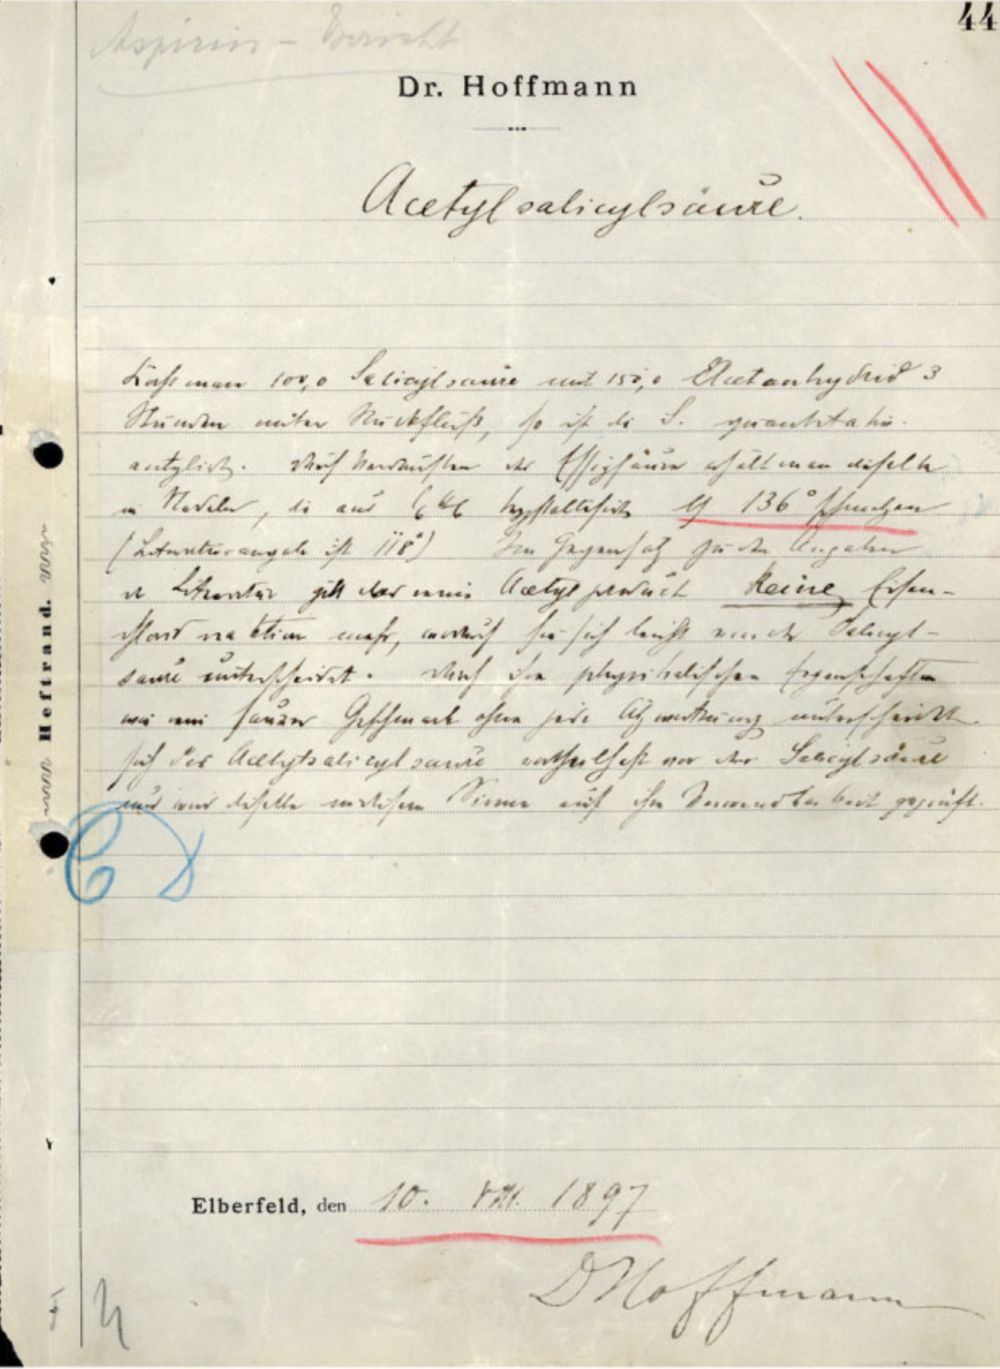 44
Aspirin - Bericht
Dr. Hoffmann
Acetylsalicylsäure.
man 100,0 Salicylsäure mit 150,0 Acetanhydrid 3
Stunden unter Rückfluß, so ist die S. quantitativ
acetylirt. Durch der Essigsäure erhält man dieselbe
in Nadeln, die aus krystallisirt 136° schmelzen
(Literaturangabe ist 118°) Im Gegensatz zu den Angaben
der Literatur das reine Acetylproduct keine Eisen-
chloridreaktion mehr, wodurch sie sich leicht von der Salicyl-
säure unterscheidet. Durch ihre physikalischen Eigenschaften
wie sauren Geschmack ohne jede Ätzwirkung unterscheidet
sich die Acetylsalicylsäure vortheilhaft von der Salicylsäure
und wird dieselbe in diesem Sinne auf ihre Verwendbarkeit geprüft.
Heftrand.
Elberfeld, den 10. VIII. 1897
Hoffmann